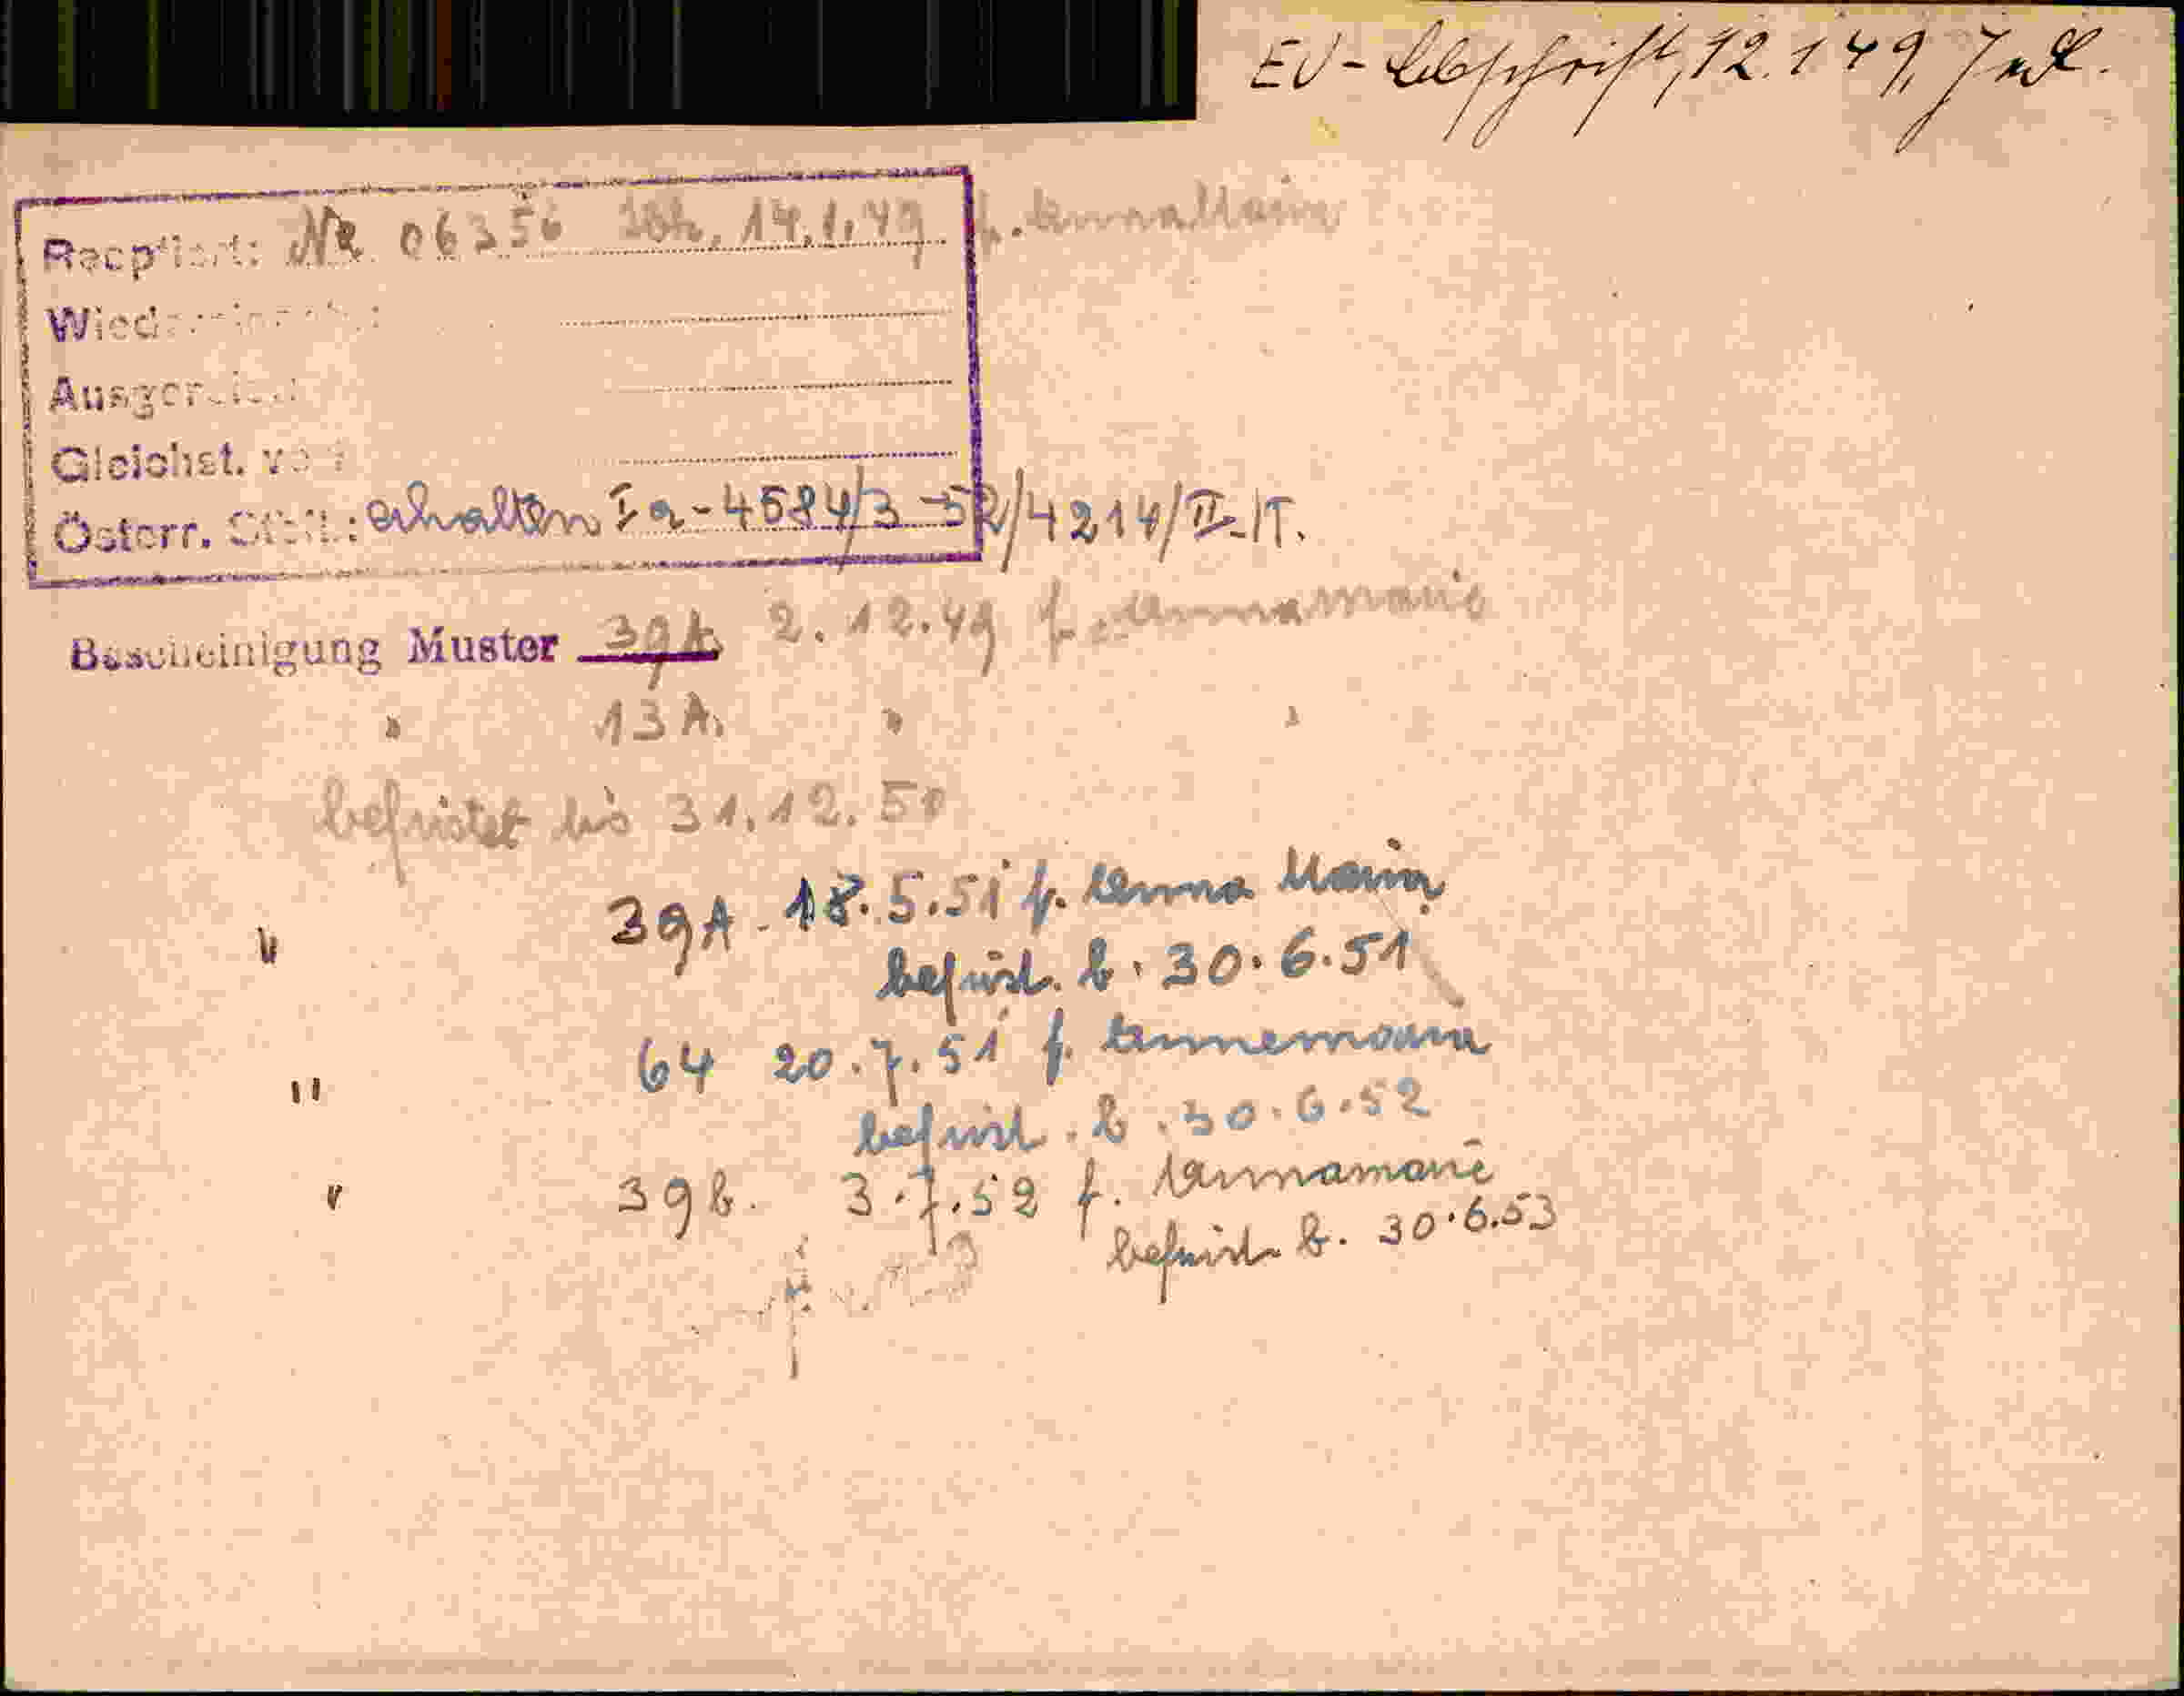 EV-Abschrift, 12.1.49, Jnd.
Recptiert: Nr. 06356 14.1.49 f. Anna Maria
Wied
Ausger
Gleichst. v
Österr. Stb.: erhalten Ia-4584/3-52/4214/II-IT.
Bescheinigung Muster 39A 2.12.49 f. Annamarie
" 13A. " "
befristet bis 31.12.50
" 39A. 18.5.51 f. Anna Maria
befrist. b. 30.6.51
" 64 20.7.51 f. Annemaria
befrist. b. 30.6.52
" 39b. 3.7.52 f. Annamarie
befrist. b. 30.6.53